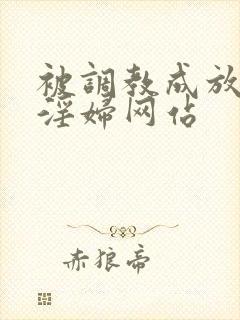 被調教成放
淫婦网站
赤狼帝